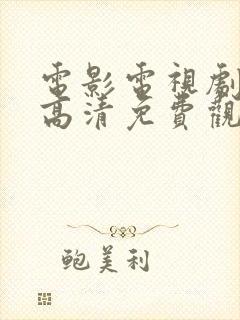 電影電視劇
高清免費觀
鮑美利